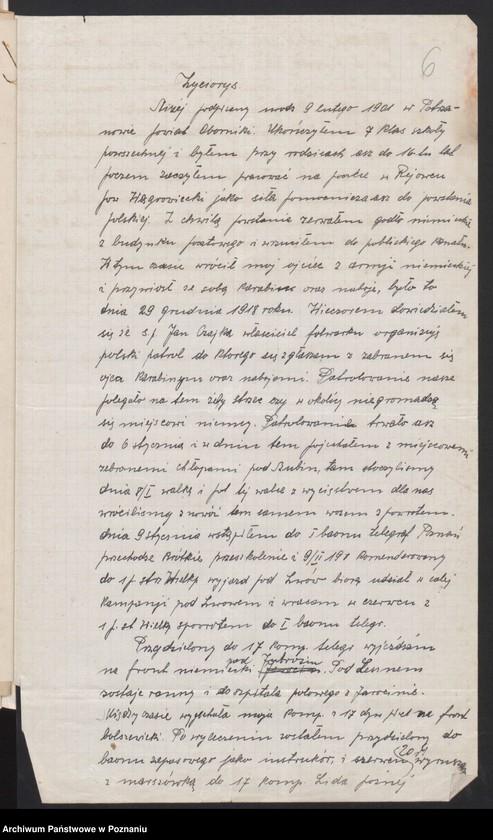 6
Życiorys.
Niżej podpisany urodz 9 lutego 1901 w Potrza-
nowie powiat Oborniki. Ukończyłem 7 klas szkoły
powszechnej i byłem przy rodzicach aż do 16-tu lat
poczem zacząłem pracować na poczcie w Rejowcu
pow Wągrowiecki jako siła pomocnicza aż do powstania
polskiej. Z chwilą powstania zerwałem godło niemieckie
z budynku pocztowego i wrzuciłem do publickiego kanału.
W tym czasie wrócił mój ojciec z armji niemieckiej
i przywiózł ze sobą karabin oraz naboje, było to
dnia 29 grudnia 1918 roku. Wieczorem dowiedziałem
się że s.p. Jan Czejka właściciel folwarku organizuje
polski patrol do którego się zgłaszam z zabranem się
ojca karabinym oraz nabojami. Patrolowanie nasze
polegało na tem żeby strzec czy w okolicy nie gromadzą
się miejscowi niemcy. Patrolowanie trwało aż
do 6 stycznia i w dniu tem pojechałem z miejscowemi
zebranemi chłopami pod Szubin, tam stoczyliśmy
dnia 8/I walkę i po tej walce z wycięstwem dla nas
wróciliśmy z nowóż tem samem wozem z powrotem.
dnia 9 stycznia wstąpiłem do I baonu telegraf Poznań
przechodzę krótkie przeszkolenie i 9/II 191 komenderowany
do 1 p. str. Wielkp wyjazd pod Lwów biorę udział w całej
kampanji pod Lwowem i wracam w czerwcu z
1 p. st. Wielkp spowrotem do I baonu telegr.
Przydzielony do 17 komp. telegr wyjeżdżam
na front niemiecki pod
Pod Lesznem
zostaje ranny i do szpitala polowego z Jarocinie.
Międzyczasie wyjechała moja komp. z 17 dyw Wlkt na front
bolszewicki. Po wyleczeniu zostałem przydzielony do
baonu zapasowego jako instruktór, i szerwcu (20 r) wyruszam
z marszówką do 17 komp. Lida później
Archiwum Państwowe w Poznaniu
Archiwum Państwowe w Poznaniu